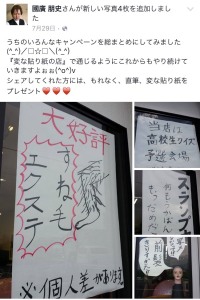 國廣 朋史さんが新しい写真4枚を追加しまし
た
7月29日
うちのいろんなキャンペーンを総まとめにしてみました
(^_^)／□☆□＼(^_^)
『変な貼り紙の店』で通じるようにこれからもやり続けて
いきますよぉぉ(^o^)v
シェアしてくれた方には、もれなく、直筆、変な貼り紙を
プレゼント❤️❤️❤️
大好評
すね毛
エクステ
※個人差があります
当店は
高校生クイズ
予選会場
スランプ